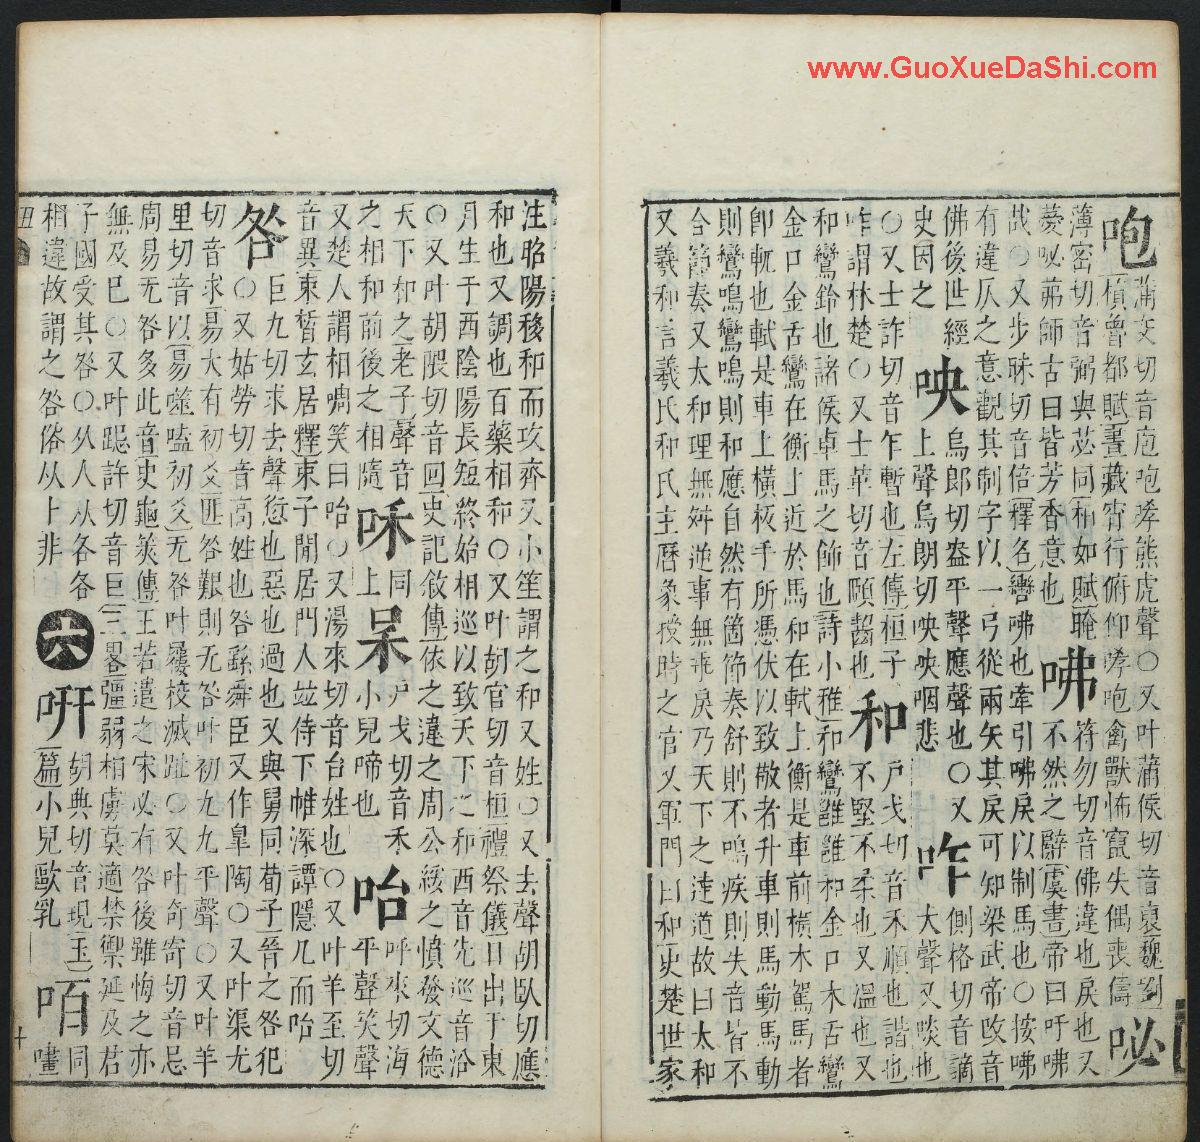 咆蒲交切音庖咆哮熊虎聲○又叶蒲侯切音裒魏劉
楨魯都賦晝藏宵行俯仰哮咆禽獸怖竄失偶喪儔咇
薄密切音弼與苾同相如賦晻咈符勿切音佛違也戾也又
薆咇茀師古曰皆芳香意也不然之辭虞書帝曰吁咈
哉○又步昧切音倍釋名轡咈也牽引咈戾以制馬也○按咈
有違仄之意觀其制字以一弓從兩矢其戾可知梁武帝改音
佛後世經咉烏郎切盎平聲應聲也○又咋側格切音謫
史因之上聲烏朗切咉咉咽悲大聲又啖也
○又士詐切音乍暫也左傳桓子和戶戈切音禾順也諧也
咋謂林楚○又士革切音賾齧也不堅不柔也又溫也又
和鸞鈴也諸侯車馬之飾也詩小雅和鸞雝雝和金口木舌鸞
金口金舌鸞在衡上近於馬和在軾上衡是車前橫木駕馬者
卽軏也軾是車上橫板手所憑伏以致敬者升車則馬動馬動
則鸞鳴鸞鳴則和應自然有箇節奏舒則不鳴疾則失音皆不
合節奏又太和理無舛逆事無乖戾乃天下之達道故曰太和
又羲和言羲氏和氏主曆象授時之官又軍門曰和史楚世家
注昭陽移和而攻齊又小笙謂之和又姓○又去聲胡臥切應
和也又調也百藥相和○又叶胡官切音桓禮祭儀日出于東
月生于西陰陽長短終始相巡以致天下之和西音先巡音沿
○又叶胡隈切音回史記敘傳依之違之周公綏之憤發文德
天下和之老子聲音咊同呆戶戈切音禾咍呼來切海
之相和前後之相隨上小兒啼也平聲笑聲
又楚人謂相啁笑曰咍○又湯來切音台姓也○又叶羊至切
音異束皙玄居釋束子閒居門人竝侍下帷深譚隱几而咍
咎巨九切求去聲愆也惡也過也又與舅同荀子晉之咎犯
○又姑勞切音高姓也咎繇舜臣又作皐陶○又叶渠尤
切音求易大有初爻匪咎艱則无咎叶初九九平聲○又叶羊
里切音以易噬嗑初爻无咎叶屨校滅趾○又叶奇寄切音忌
周易无咎多此音史龜筴傳王若遣之宋必有咎後雖悔之亦
無及巳○又叶跽許切音巨三畧彊弱相虜莫適禁禦延及君
子國受其咎○从人从各各六哯胡典切音現玉咟同
相違故謂之咎俗从卜非篇小兒歐乳畫
丑
十
www.GuoXueDaShi.com